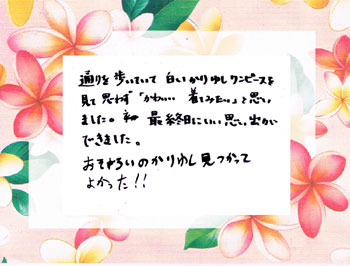 通りを歩いていて 白いかりゆしワンピースを
見て思わず「かわいい 着てみたい」と思い
ました。 最終日にいい思い出が
できました。
おそろいのかりゆし見つかって
よかった!!